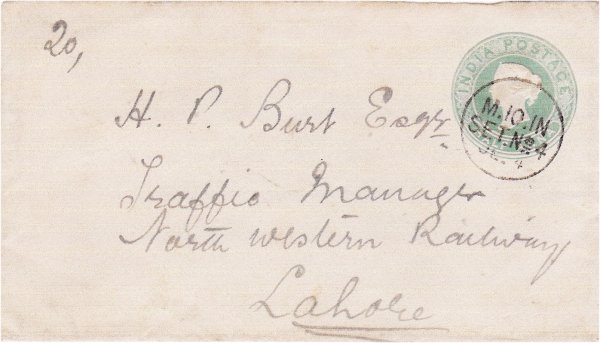 20,
INDIA POSTAGE
M.10.IN
SET.No.4
H. P. Burt Esqr
Traffic Manager
North western Railway
Lahore